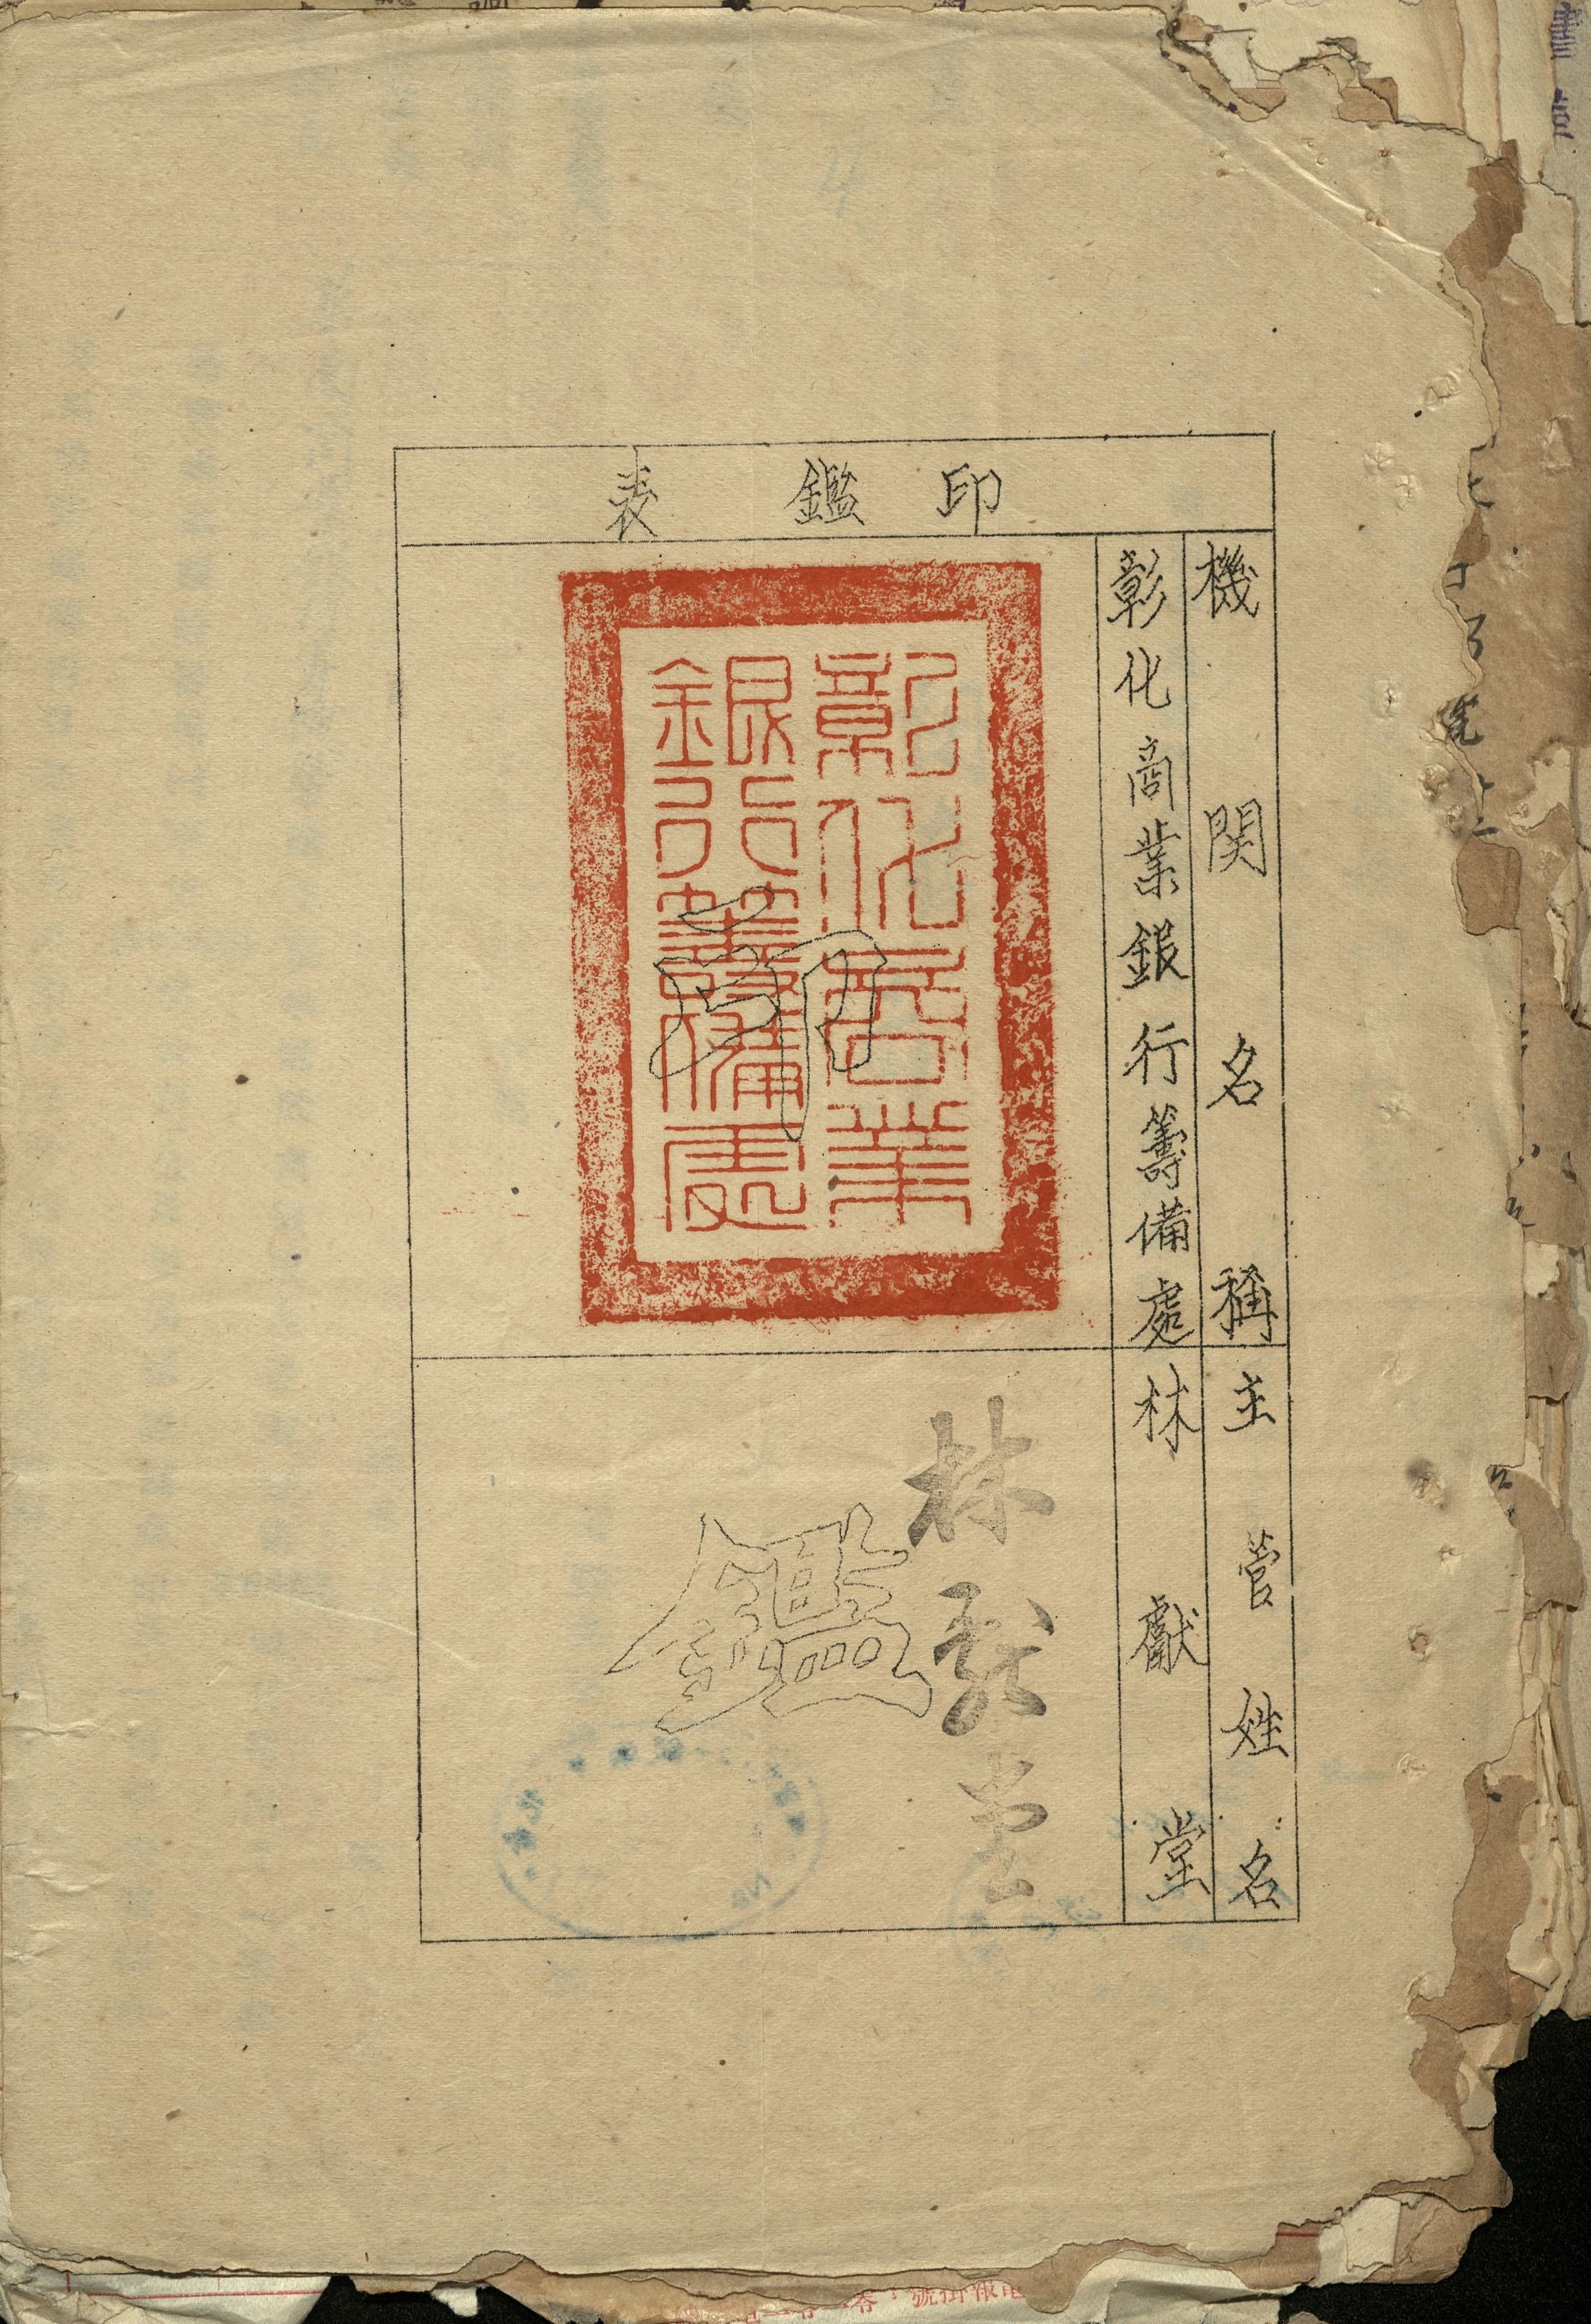 印鑑表
機関名稱
主管姓名
彰化商業銀行籌備處
林獻堂
彰化商業
銀行籌備處
印
林獻堂
鑑